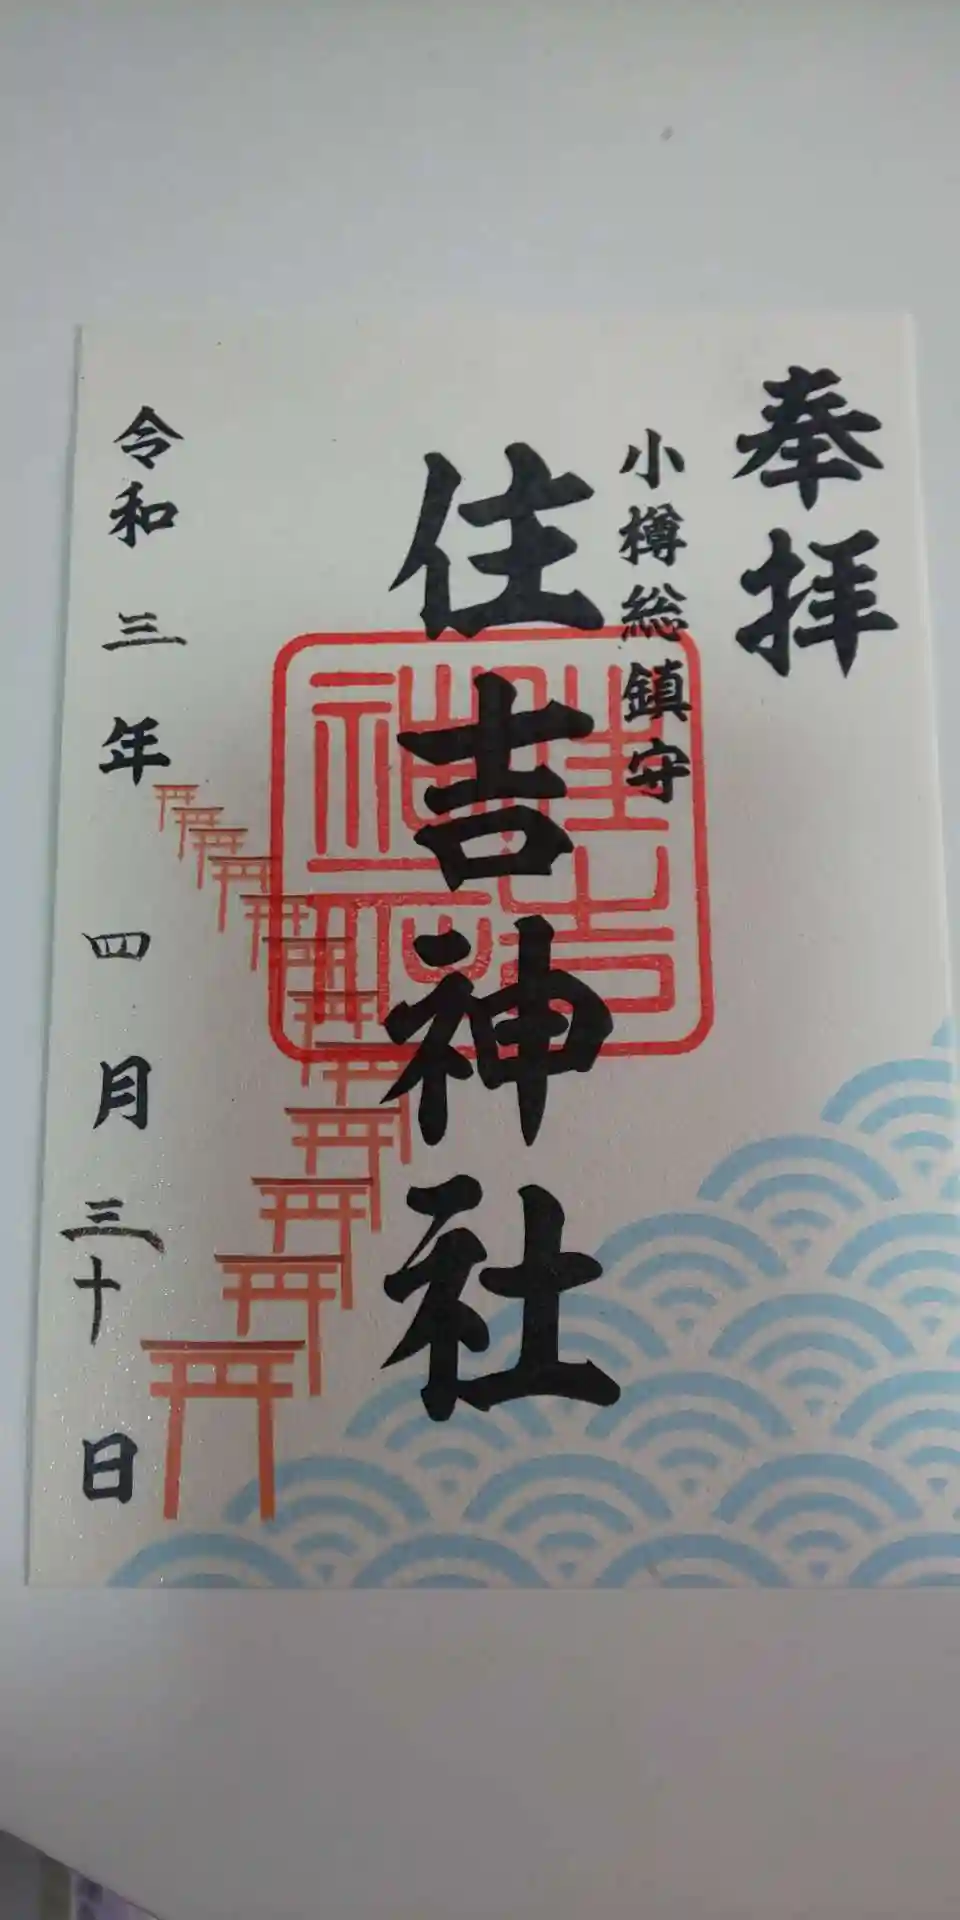 奉拝
小樽総鎮守
住吉神社
住吉神社印
令和三年四月三十日